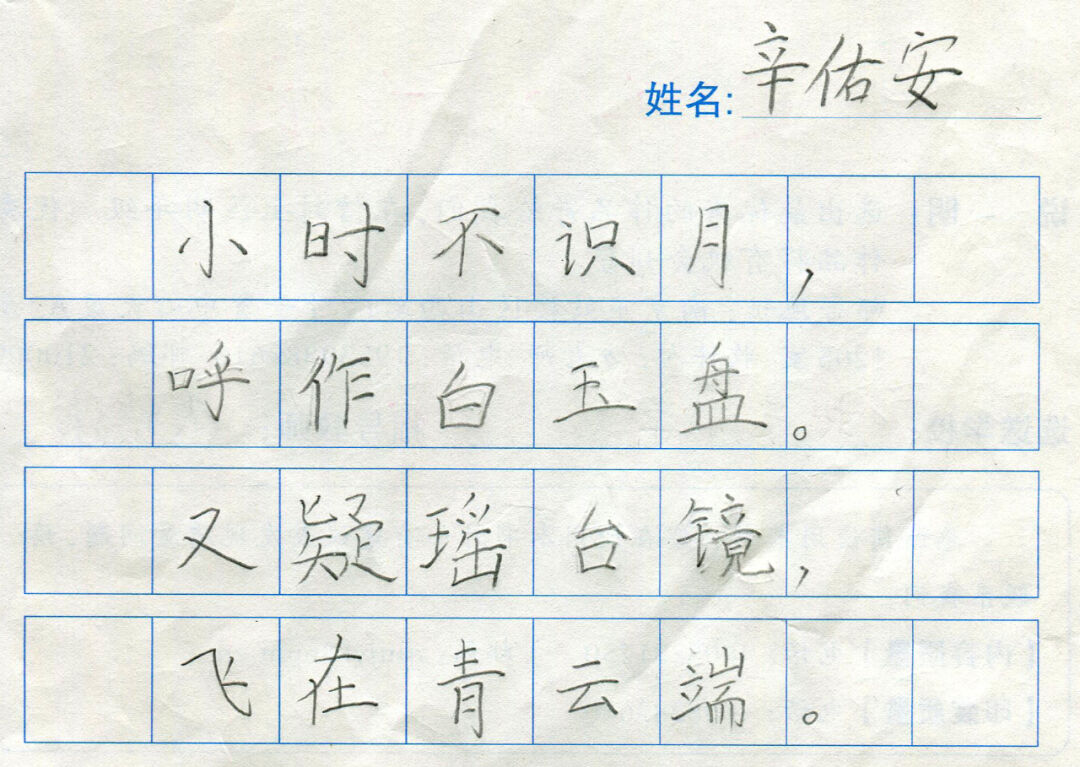 姓名: 辛佑安
小时不识月，
呼作白玉盘。
又疑瑶台镜，
飞在青云端。